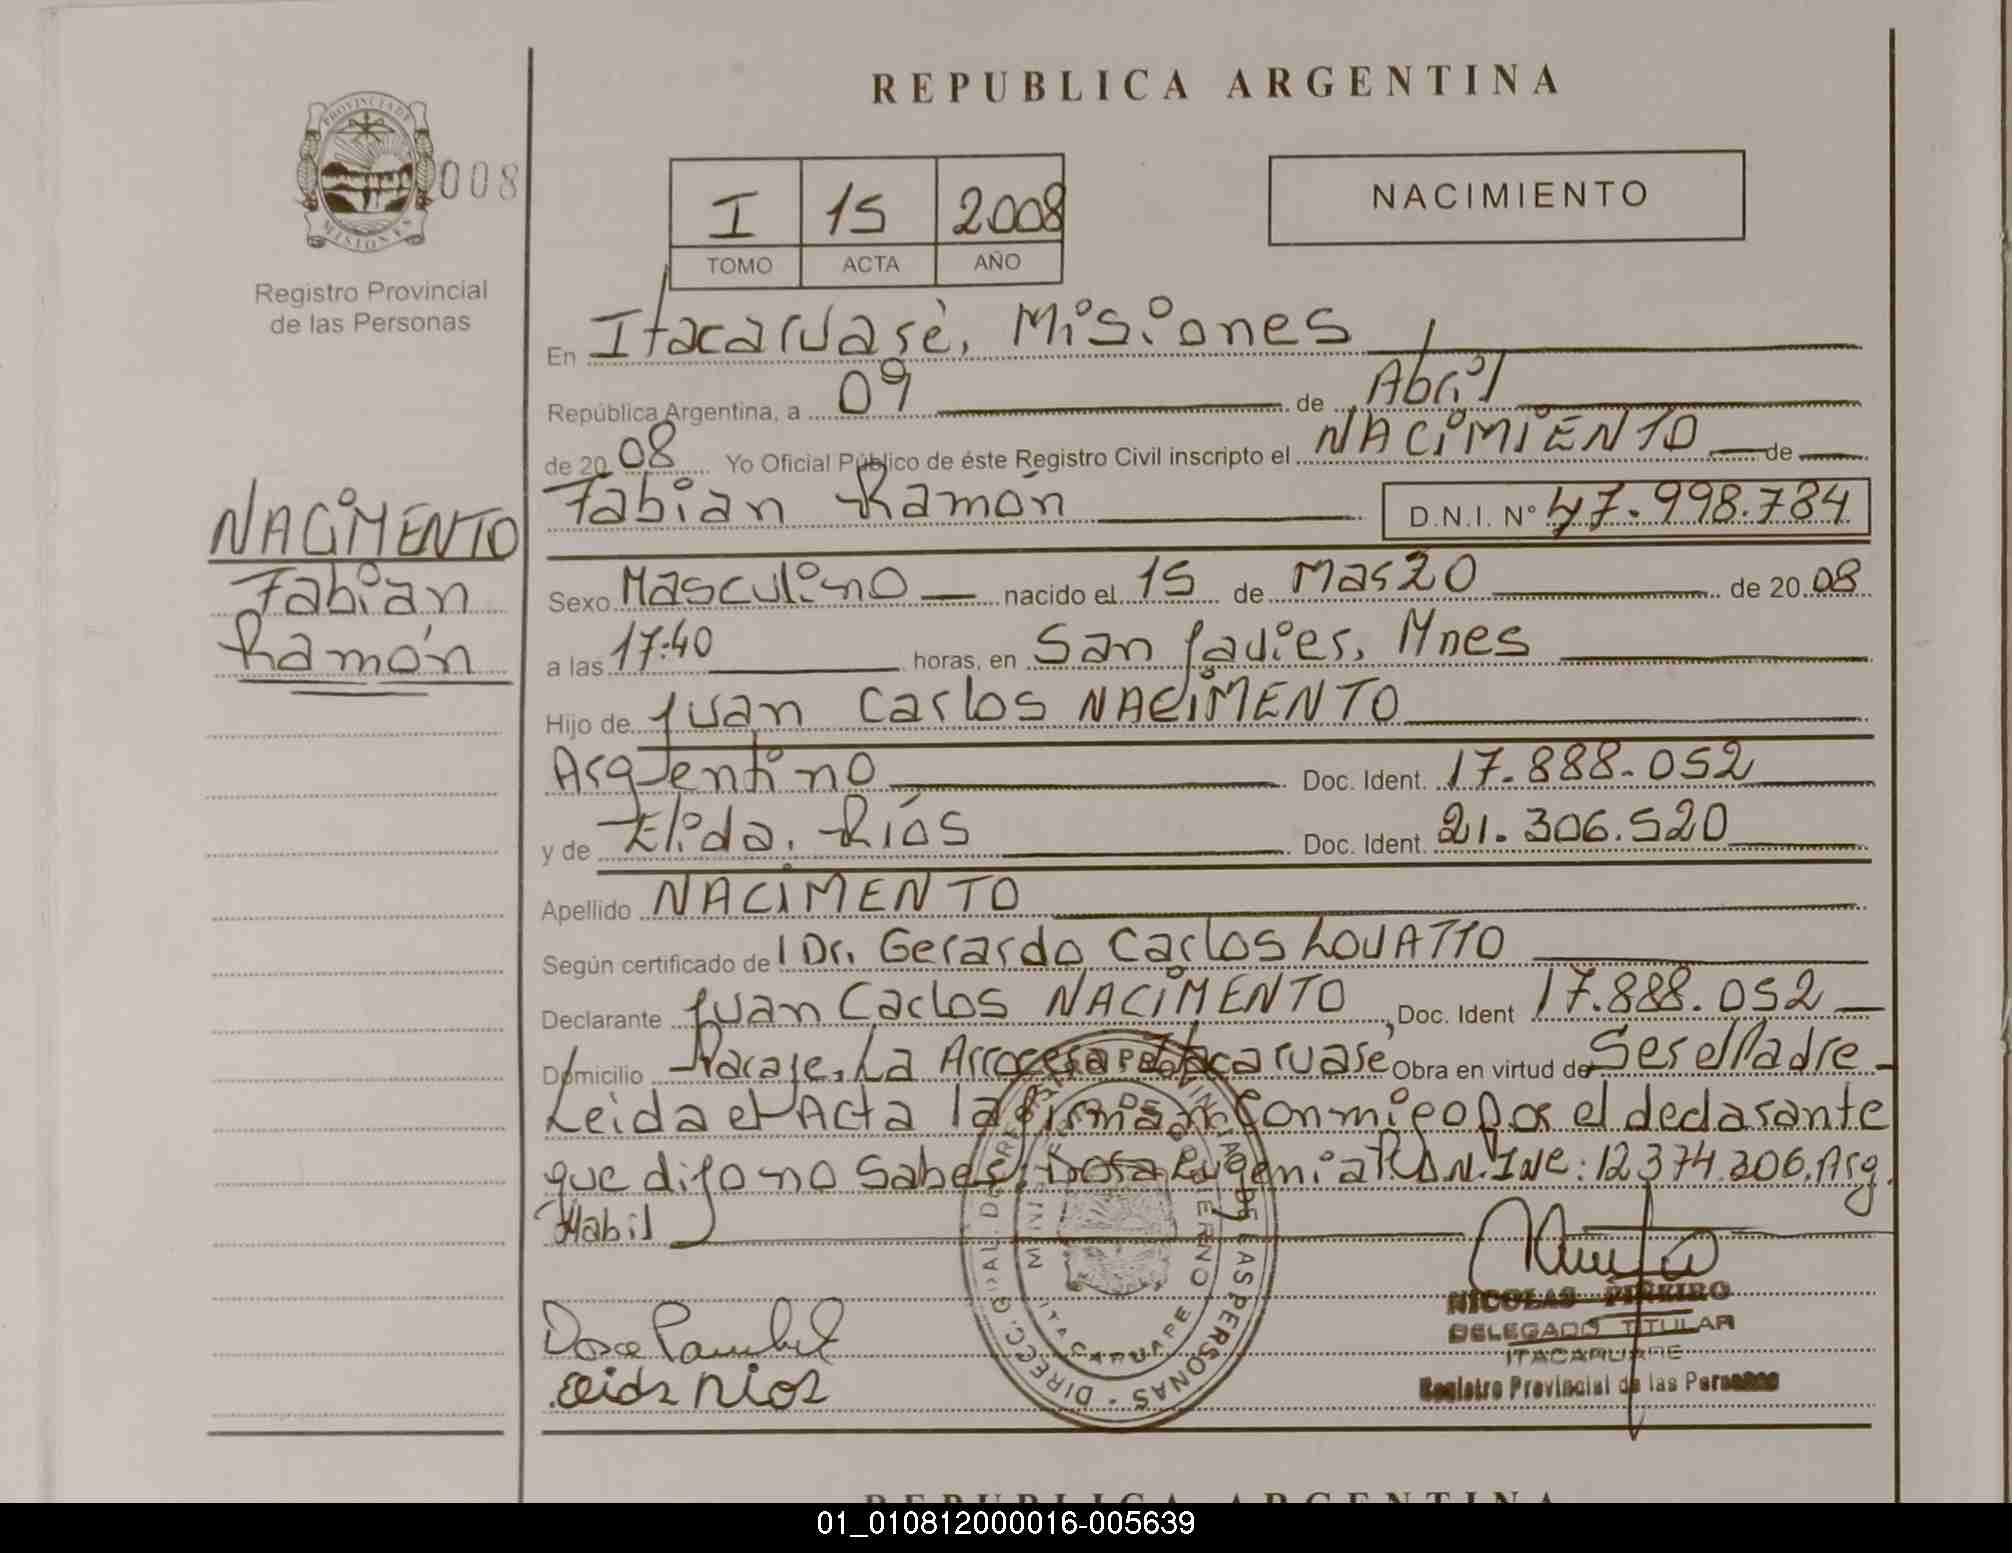 REPUBLICA ARGENTINA
PROVINCIA DE
MISIONES
008
Registro Provincial
de las Personas
I 15 2008
TOMO ACTA AÑO
NACIMIENTO
En Itacaruaré, Misiones
República Argentina, a 09 de Abril
de 20 08 Yo Oficial Público de éste Registro Civil inscripto el NACIMIENTO de
Fabian Ramón D.N.I. Nº 47.998.784
NACIMENTO
Fabian
Ramón
Sexo Masculino nacido el 15 de Marzo de 20 08
a las 17:40 horas, en San Javier, Mnes
Hijo de Juan Carlos NACIMENTO
Argentino Doc. Ident. 17.888.052
y de Elida. Ríos Doc. Ident. 21.306.520
Apellido NACIMENTO
Según certificado de l Dr. Gerardo Carlos LOVATTO
Declarante Juan Carlos NACIMENTO, Doc. Ident 17.888.052
Domicilio Paraje. La Arrocera Itacaruare Obra en virtud de Ser el Padre
Leida el Acta la firman Conmigo Por el declarante
que dijo no Saber, Rosa Eugenia D.N.I Nº: 12.374.306. Arg.
Habil
Elida Rios
NICOLAS PIÑEIRO
DELEGADO TITULAR
ITACARUARE
Registro Provincial de las Personas
DIRECC. GRAL. DEL REGISTRO PROVINCIAL DE LAS PERSONAS
MINISTERIO DE GOBIERNO
ITACARUARE
REPUBLICA ARGENTINA
01_010812000016-005639